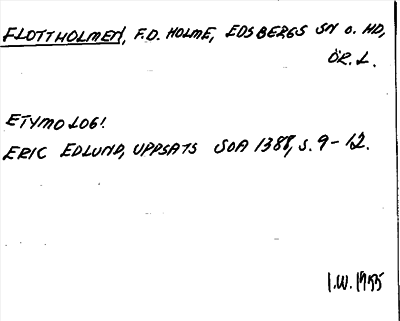 FLOTTHOLMEN, F.D. HOLME, EDSBERGS SN O. HD,
ÖR. L.
ETYMOLOGI
ERIC EDLUND, UPPSATS SOA 1388, S. 9-12.
I.W. 1955